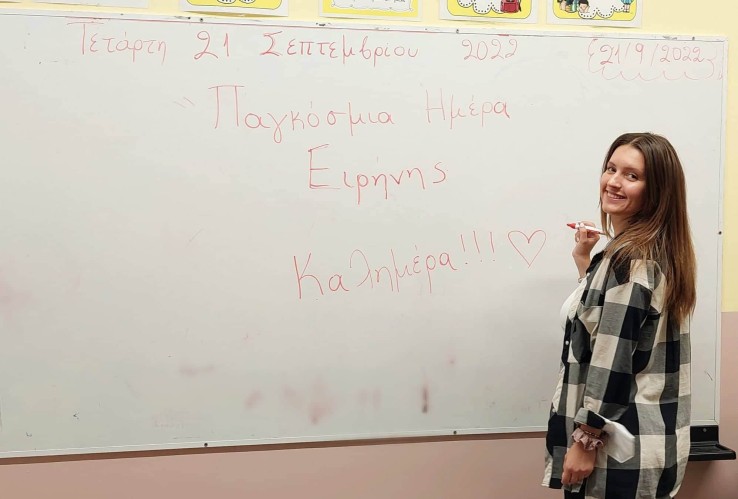 Τετάρτη 21 Σεπτεμβριου 2022
21/9/2022
Παγκόσμια Ημέρα
Ειρήνης
Καλημέρα!!!